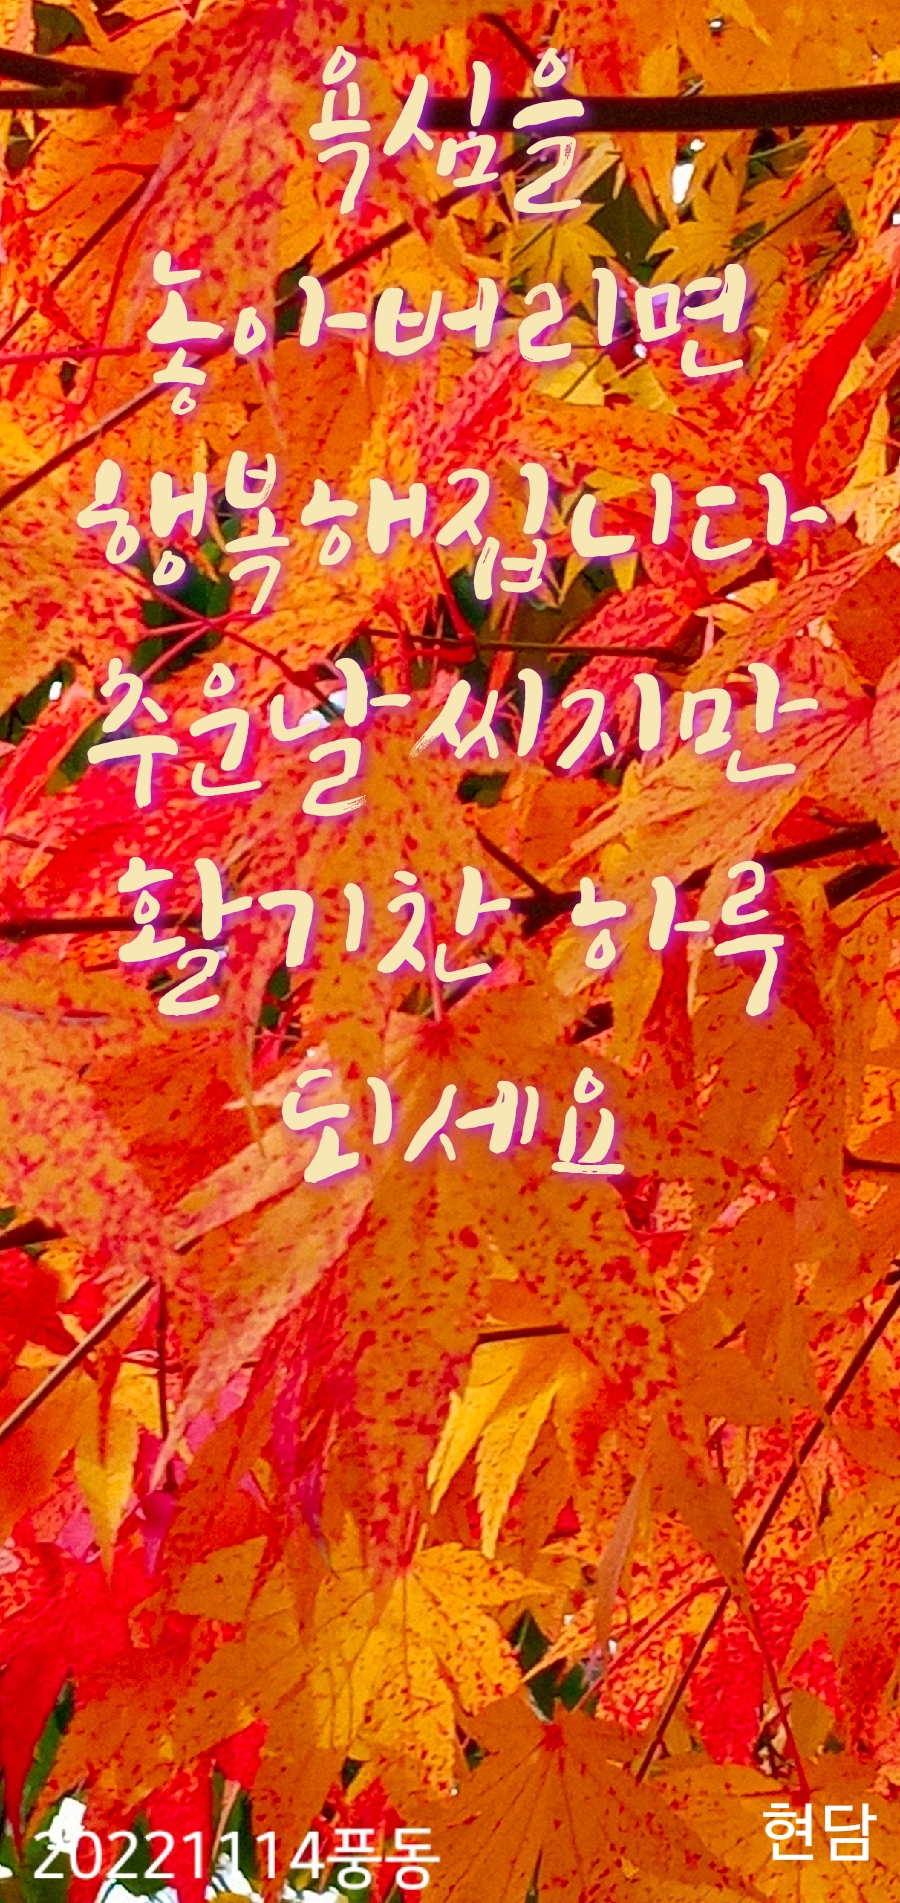 욕심을
놓아버리면
행복해집니다
추운날씨지만
활기찬 하루
되세요
20221114풍동
현담